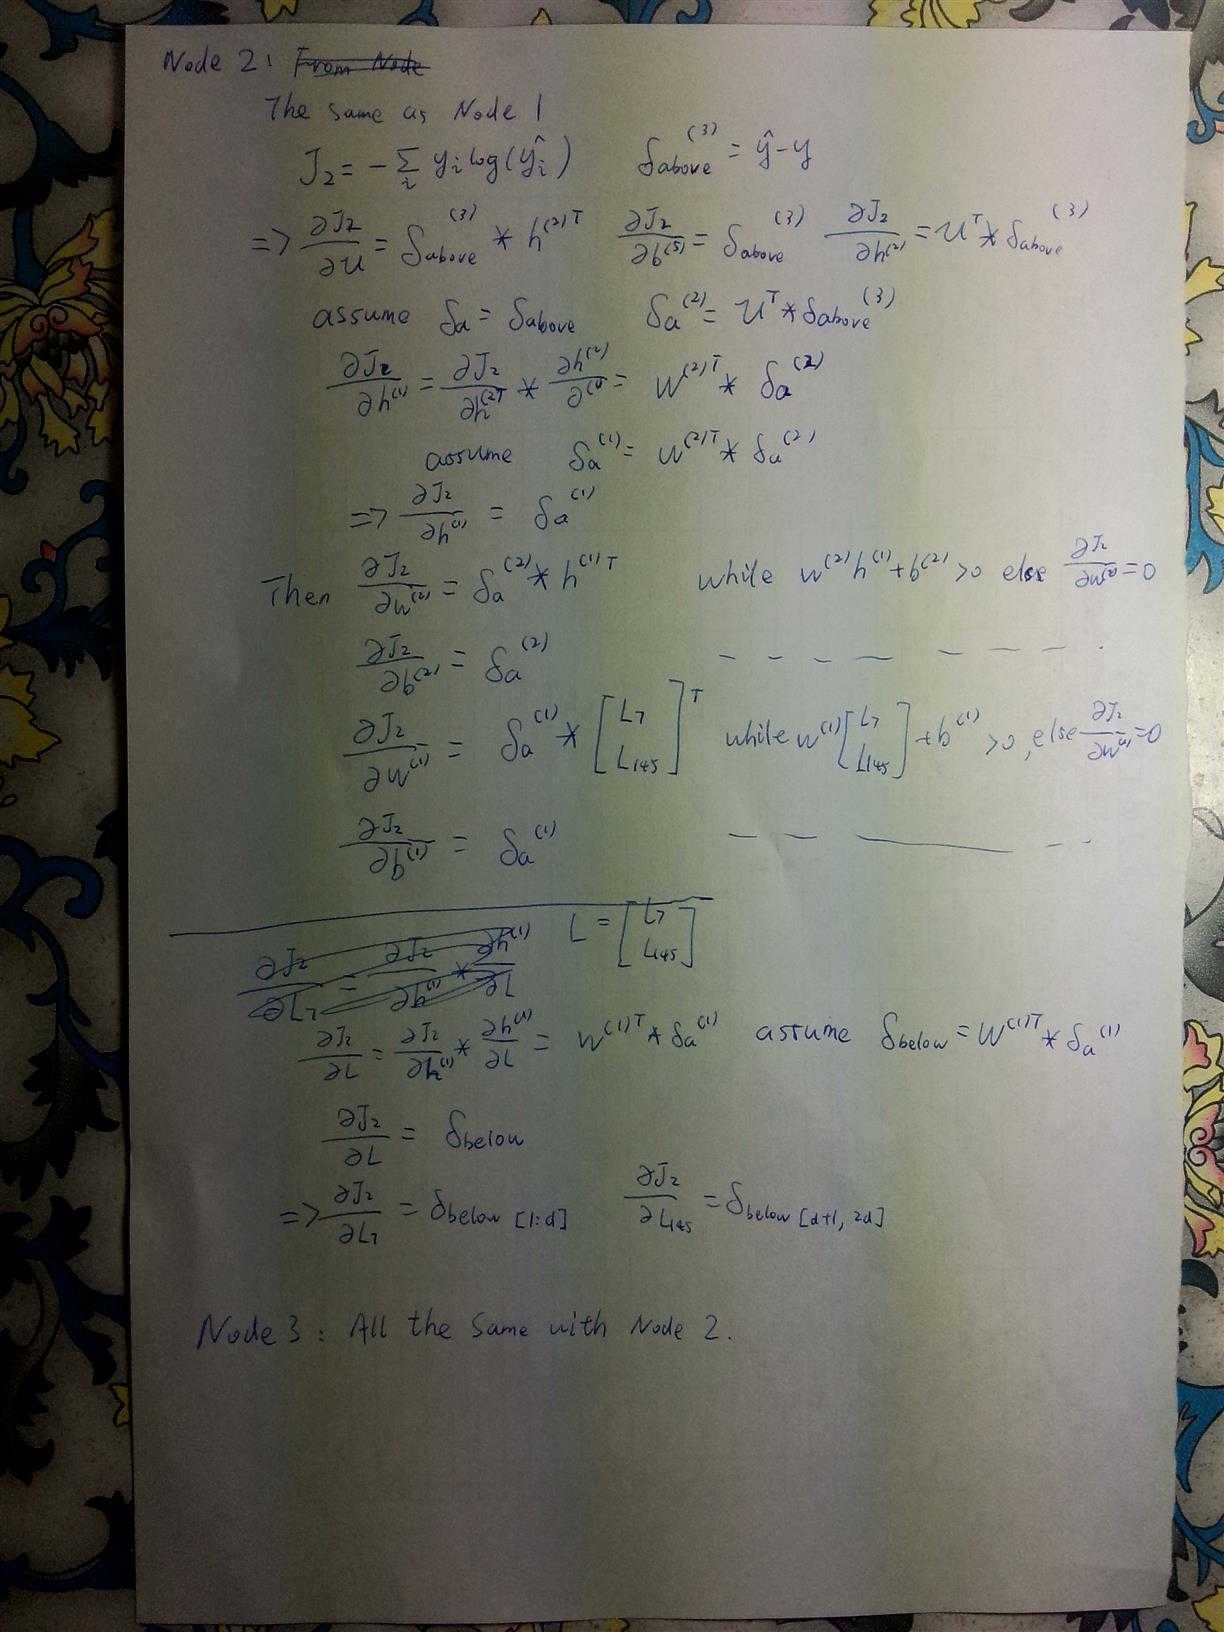 Node 2: From Node
The same as Node 1
J₂ = -∑ᵢ yᵢ log(ŷᵢ) δabove⁽³⁾ = ŷ - y
=> ∂J₂/∂U = δabove⁽³⁾ * h⁽²⁾ᵀ ∂J₂/∂b⁽ˢ⁾ = δabove⁽³⁾ ∂J₂/∂h⁽²⁾ = Uᵀ * δabove⁽³⁾
assume δa = δabove δa⁽²⁾ = Uᵀ * δabove⁽³⁾
∂J₂/∂h⁽¹⁾ = ∂J₂/∂h⁽²⁾ᵀ * ∂h⁽²⁾/∂⁽¹⁾ = W⁽²⁾ᵀ * δa⁽²⁾
assume δa⁽¹⁾ = W⁽²⁾ᵀ * δa⁽²⁾
=> ∂J₂/∂h⁽¹⁾ = δa⁽¹⁾
Then ∂J₂/∂W⁽²⁾ = δa⁽²⁾ * h⁽¹⁾ᵀ while W⁽²⁾h⁽¹⁾+b⁽²⁾ >0 else ∂J₂/∂W⁽²⁾ = 0
∂J₂/∂b⁽²⁾ = δa⁽²⁾ — — — — — — — .
∂J₂/∂W⁽¹⁾ = δa⁽¹⁾ * [L₇ L₁₄₅]ᵀ while W⁽¹⁾[L₇ L₁₄₅] + b⁽¹⁾ >0, else ∂J₂/∂W⁽¹⁾ = 0
∂J₂/∂b⁽¹⁾ = δa⁽¹⁾ — — — - -
∂J₂/∂L₇ = ∂J₂/∂h⁽¹⁾ * ∂h⁽¹⁾/∂L L = [L₇ L₁₄₅]
∂J₂/∂L = ∂J₂/∂h⁽¹⁾ * ∂h⁽¹⁾/∂L = W⁽¹⁾ᵀ * δa⁽¹⁾ assume δbelow = W⁽¹⁾ᵀ * δa⁽¹⁾
∂J₂/∂L = δbelow
=> ∂J₂/∂L₇ = δbelow [1:d] ∂J₂/∂L₁₄₅ = δbelow [d+1, 2d]
Node 3: All the same with Node 2.